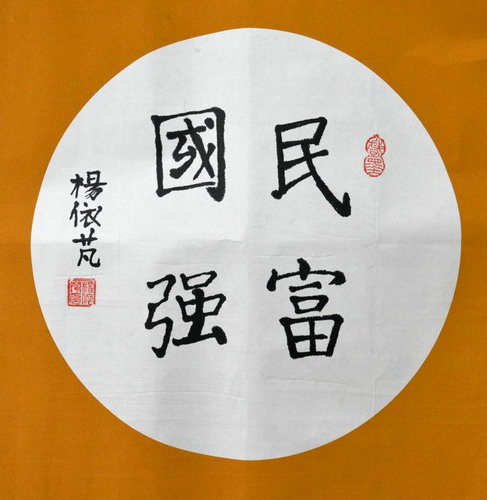 民富
國强
楊依芃